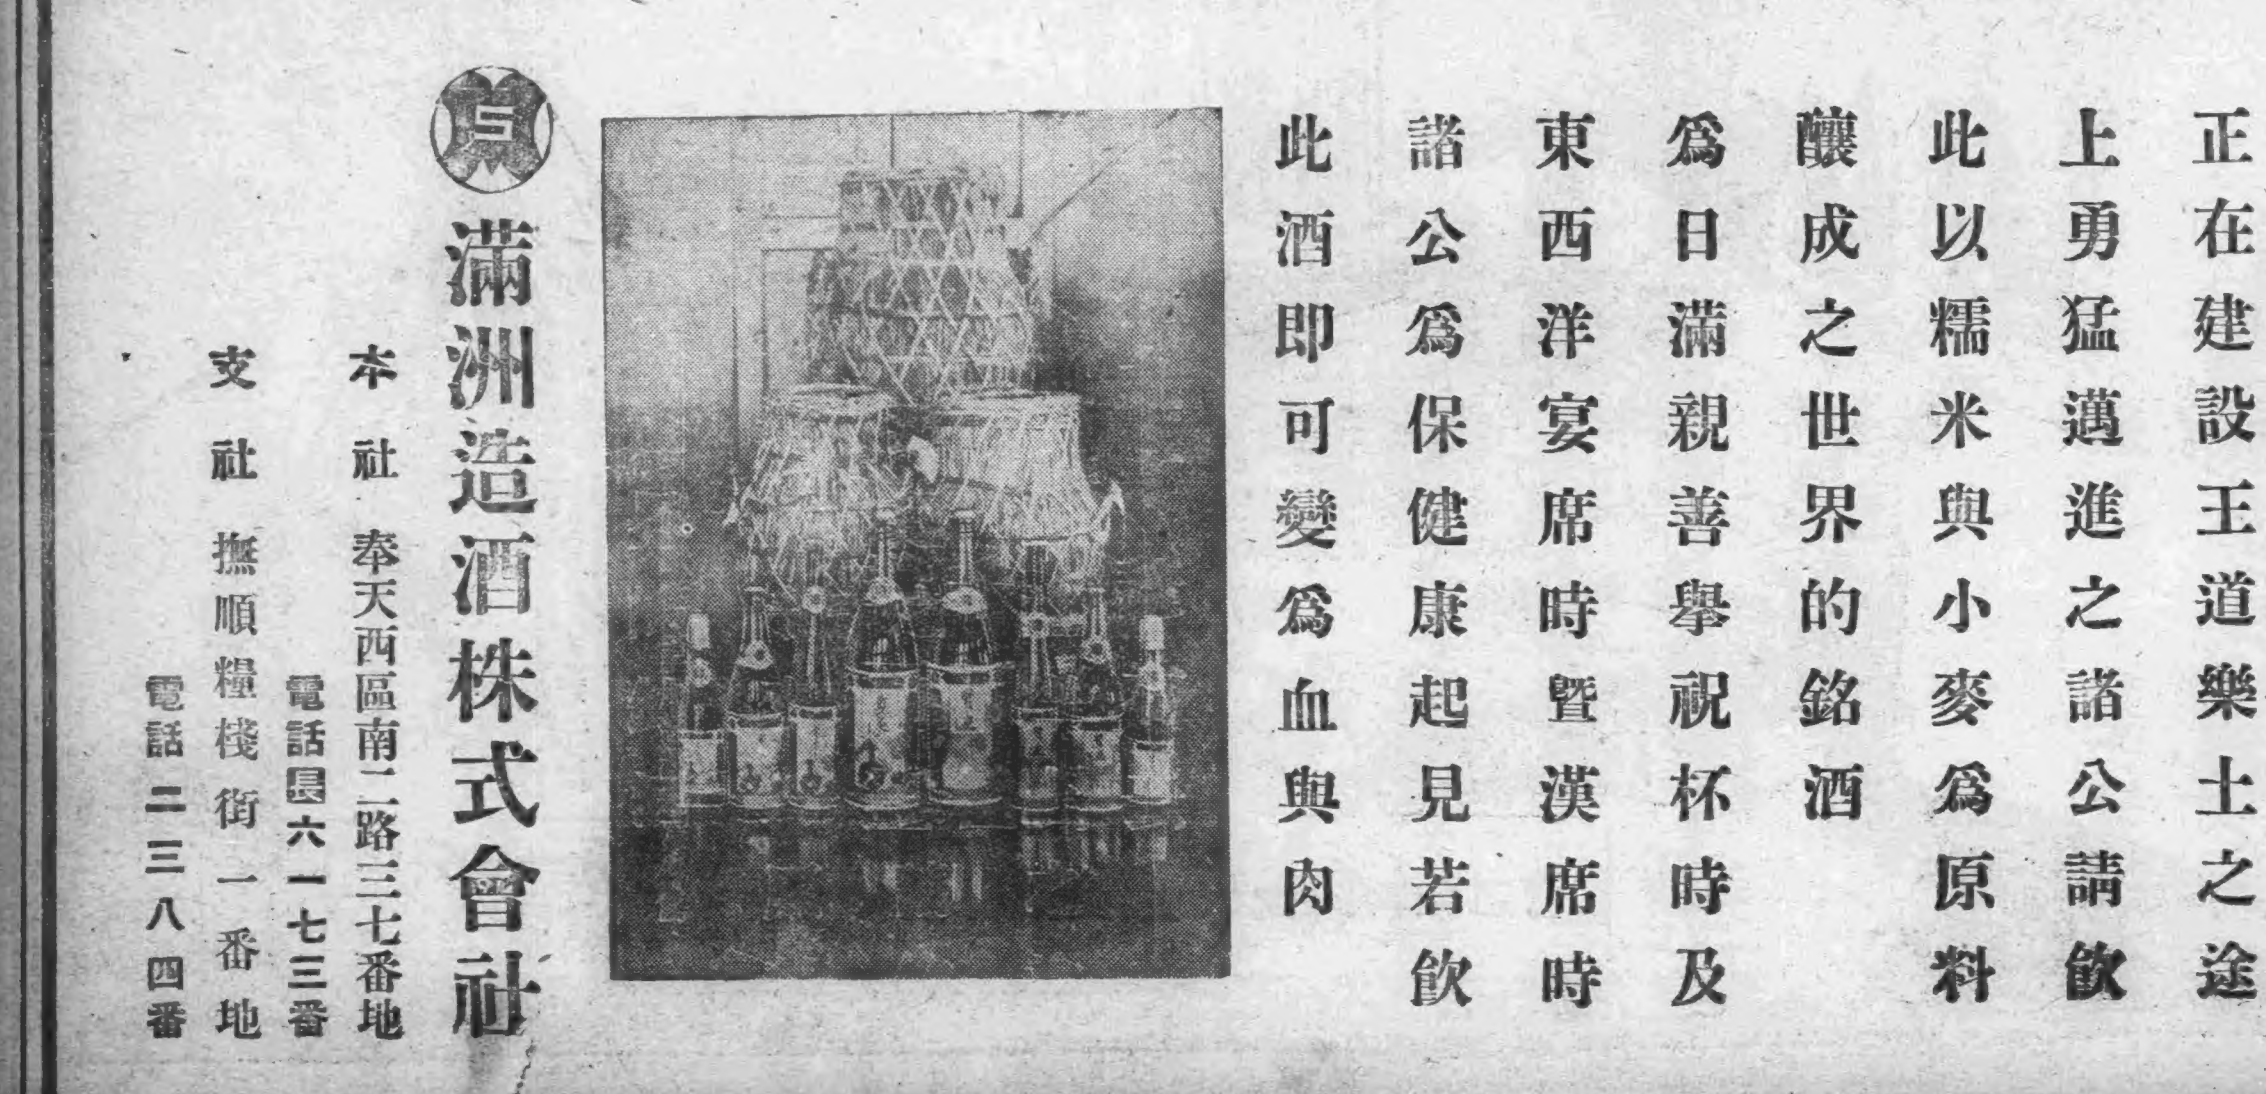 正在建設王道樂土之途
上勇猛邁進之諸公請飲
此以糯米與小麥爲原料
釀成之世界的銘酒
爲日滿親善擧祝杯時及
東西洋宴席時暨漢席時
諸公爲保健康起見若飲
此酒即可變爲血與肉
滿洲造酒株式會社
本社 奉天西區南二路三七番地
電話長六一七三番
支社 撫順糧棧街一番地
電話二三八四番